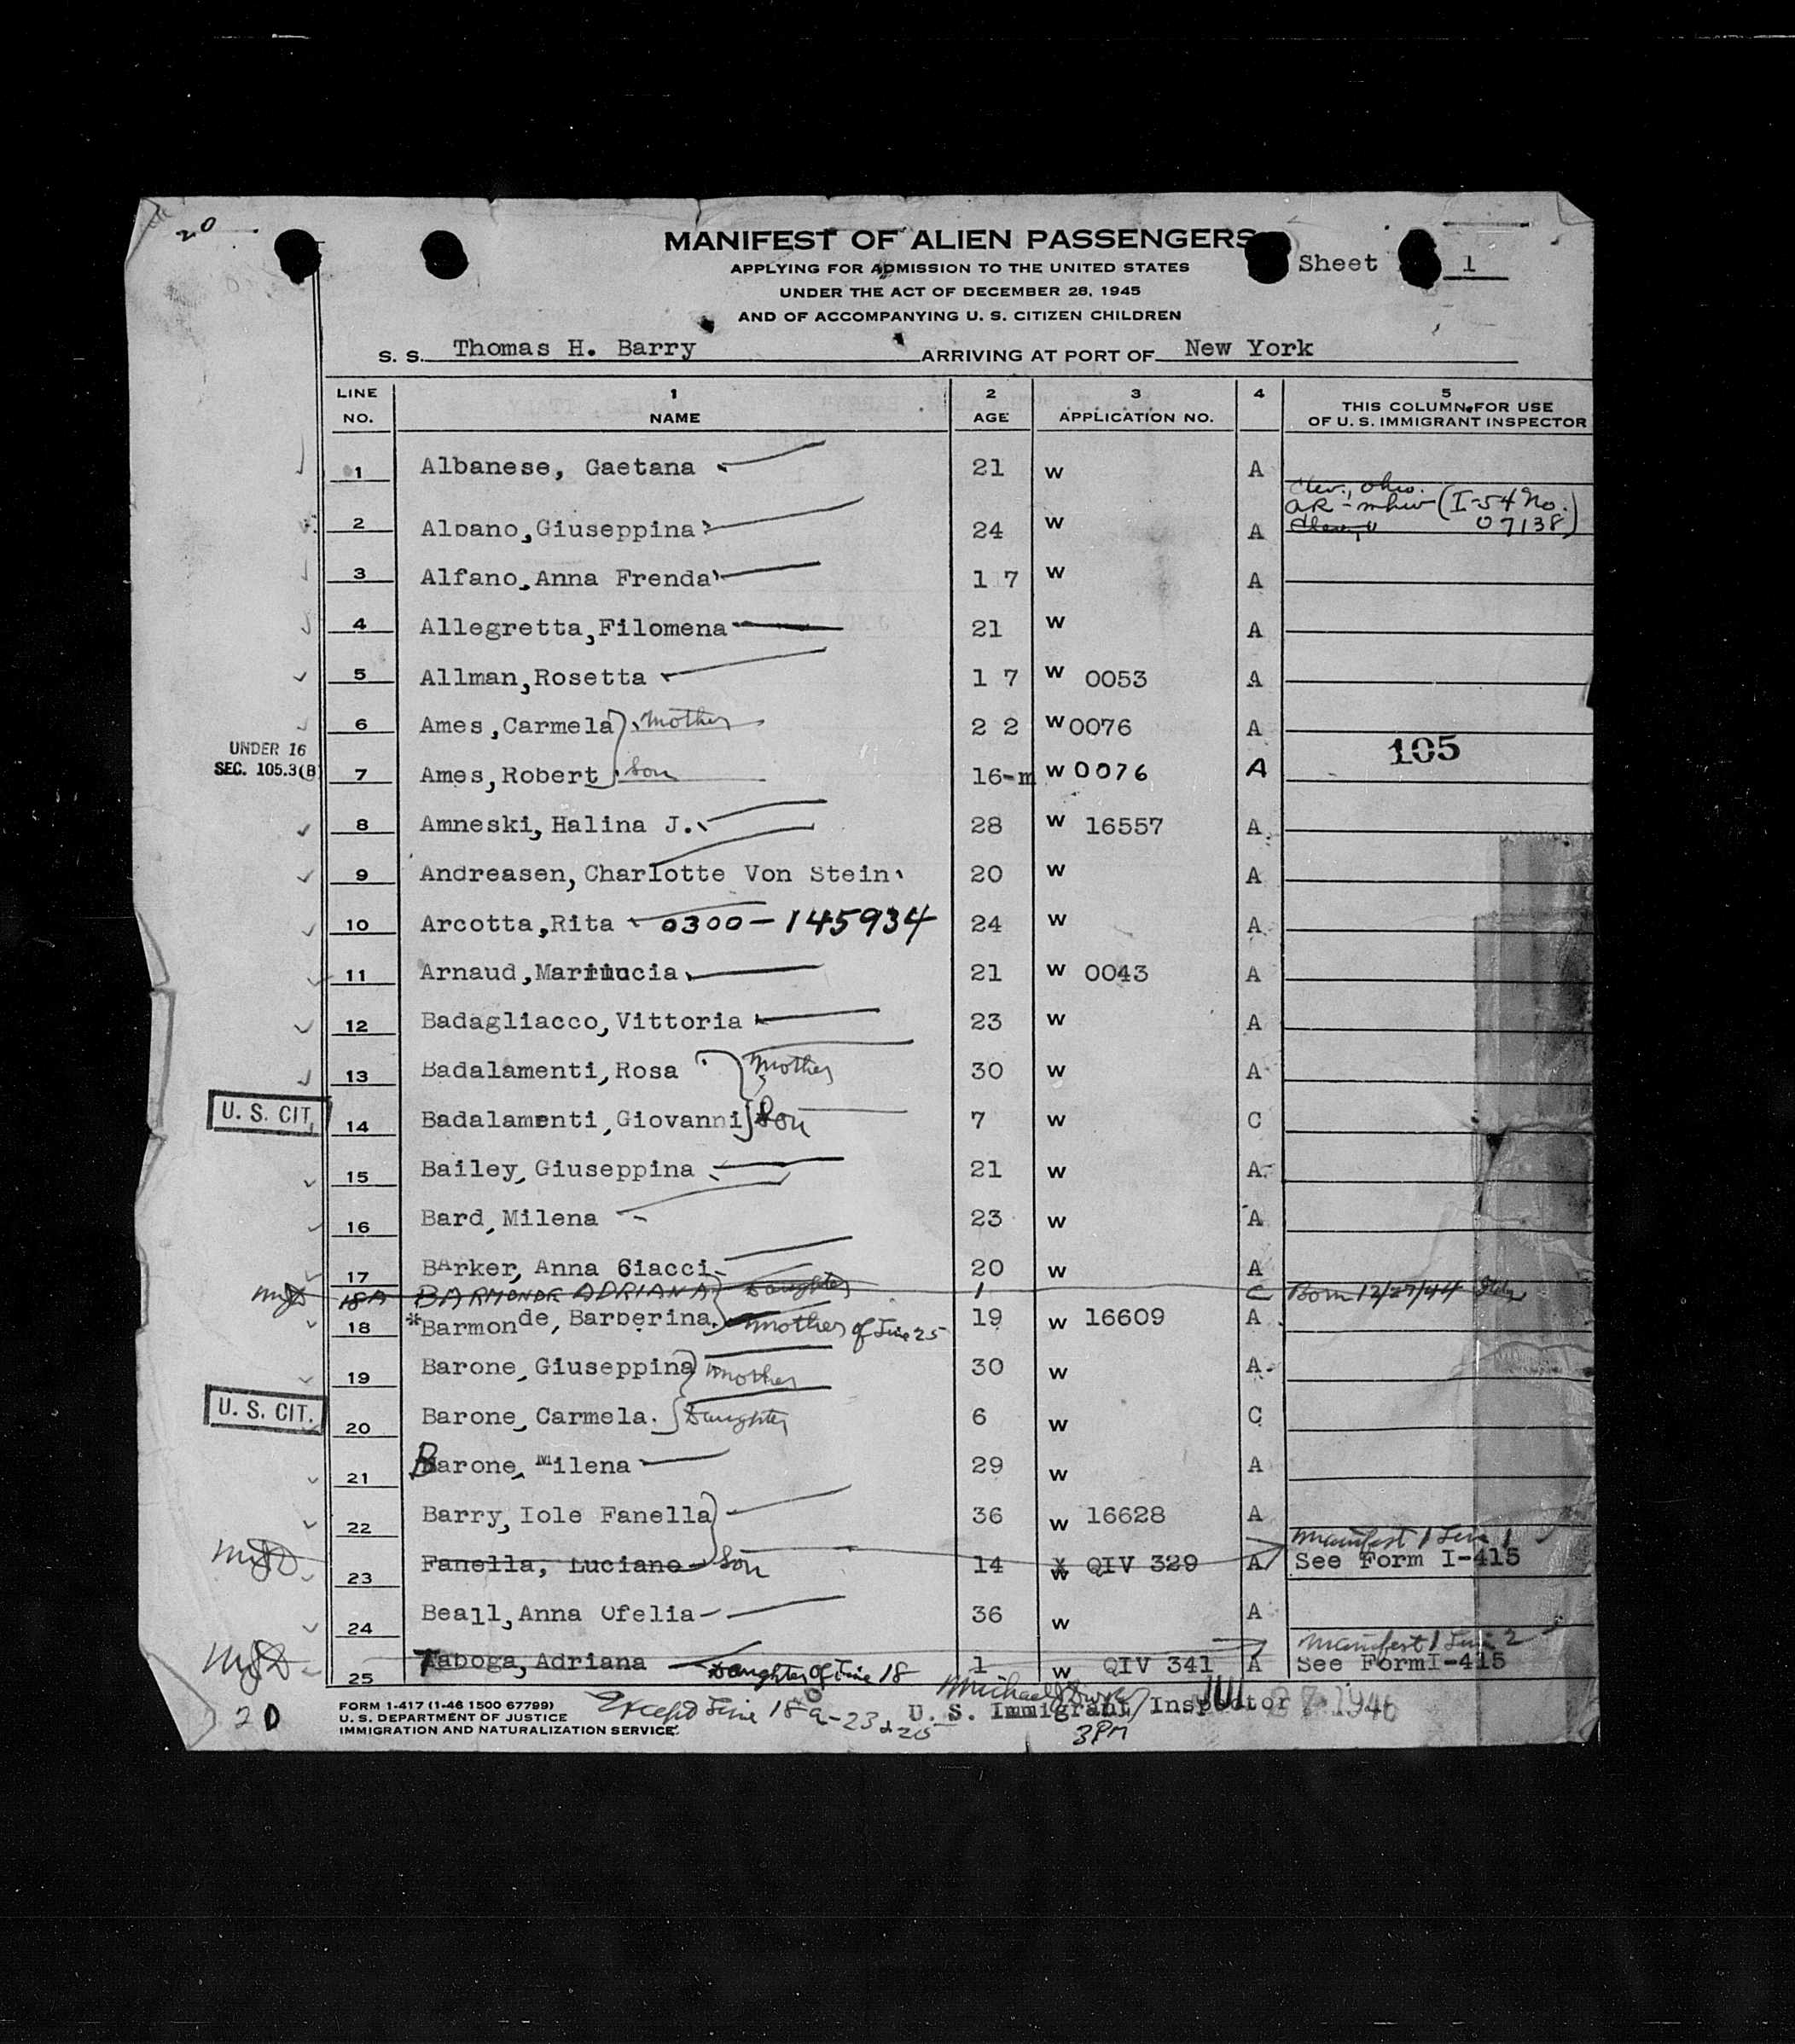 20
MANIFEST OF ALIEN PASSENGERS
APPLYING FOR ADMISSION TO THE UNITED STATES
UNDER THE ACT OF DECEMBER 28, 1945
AND OF ACCOMPANYING U. S. CITIZEN CHILDREN
Sheet 1
S. S. Thomas H. Barry ARRIVING AT PORT OF New York
LINE NO. 1 NAME 2 AGE 3 APPLICATION NO. 4 5 THIS COLUMN FOR USE OF U. S. IMMIGRANT INSPECTOR
1 Albanese, Gaetana 21 W A
Clev., Ohio.
2 Albano, Giuseppina 24 W A AR - mhw (I-54 No. 07138)
3 Alfano, Anna Frenda 1 7 W A
4 Allegretta, Filomena 21 W A
5 Allman, Rosetta 1 7 W 0053 A
6 Ames, Carmela Mother 2 2 W 0076 A
105
UNDER 16 SEC. 105.3(B) 7 Ames, Robert Son 16-m W 0076 A
8 Amneski, Halina J. 28 W 16557 A
9 Andreasen, Charlotte Von Stein 20 W A
10 Arcotta, Rita 0300-145934 24 W A
11 Arnaud, Mariuucia 21 W 0043 A
12 Badagliacco, Vittoria 23 W A
13 Badalamenti, Rosa Mother 30 W A
U. S. CIT. 14 Badalamenti, Giovanni Son 7 W C
15 Bailey, Giuseppina 21 W A
16 Bard, Milena 23 W A
17 BArker, Anna Giacci 20 W A
18A BARMONDE ADRIANA Daughter 1 C Born 12/27/44 Italy
18 *Barmonde, Barberina Mother of Line 25 19 W 16609 A
19 Barone, Giuseppina Mother 30 W A
U. S. CIT. 20 Barone, Carmela. Daughter 6 W C
21 Barone, Milena 29 W A
22 Barry, Iole Fanella 36 W 16628 A
Manifest 1 Line 1
23 Fanella, Luciano Son 14 W QIV 329 A See Form I-415
24 Beall, Anna Ofelia 36 W A
Manifest 1 Line 2
25 Taboga, Adriana Daughter of Line 18 1 W QIV 341 A See FormI-415
20
FORM I-417 (1-46 1500 67799)
U. S. DEPARTMENT OF JUSTICE
IMMIGRATION AND NATURALIZATION SERVICE
Except Line 18a-23 & 25
U. S. Immigrant Inspector
27 1946
3PM